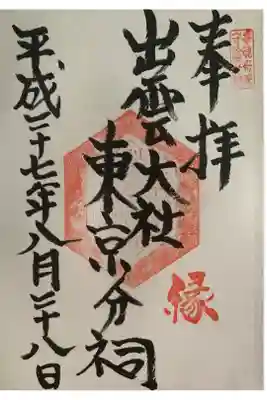 奉拝
出雲大社
東京分祠
縁
平成二十七年八月二十八日